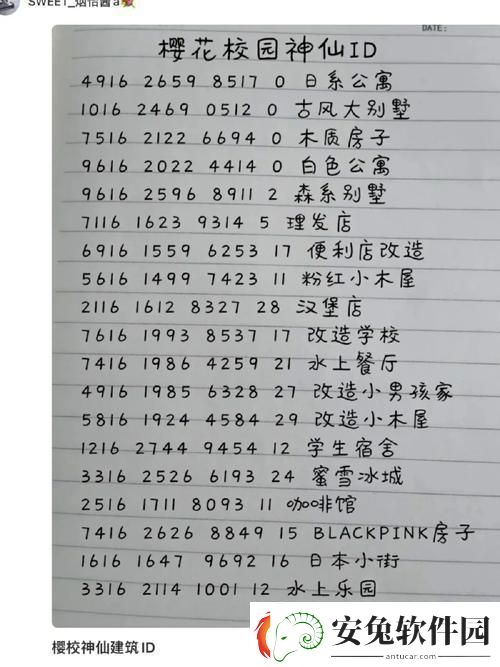 SWEET_烟怡酱a
DATE:
樱花校园神仙ID
4916 2659 8517 0 日系公寓
1016 2469 0512 0 古风大别墅
7516 2122 6694 0 木质房子
9616 2022 4414 0 白色公寓
9616 2596 8911 2 森系别墅
7116 1623 9314 5 理发店
6916 1559 6253 17 便利店改造
5616 1499 7423 11 粉红小木屋
2116 1612 8327 28 汉堡店
7616 1993 8537 17 改造学校
7416 1986 4259 21 水上餐厅
4916 1985 6328 27 改造小男孩家
5816 1924 4584 29 改造小木屋
1216 2744 9454 12 学生宿舍
3316 2526 6193 24 蜜雪冰城
2516 1711 8093 11 咖啡馆
7416 2626 8849 15 BLACKPINK房子
1616 1647 9692 16 日本小街
3316 2114 1001 12 水上乐园
樱校神仙建筑ID
安兔软件园
antucar.com